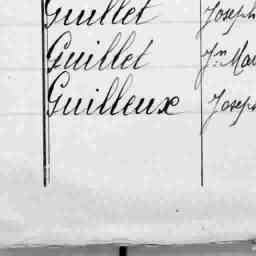 Guillet Joseph
Guillet Jn Mar
Guilleux Joseph